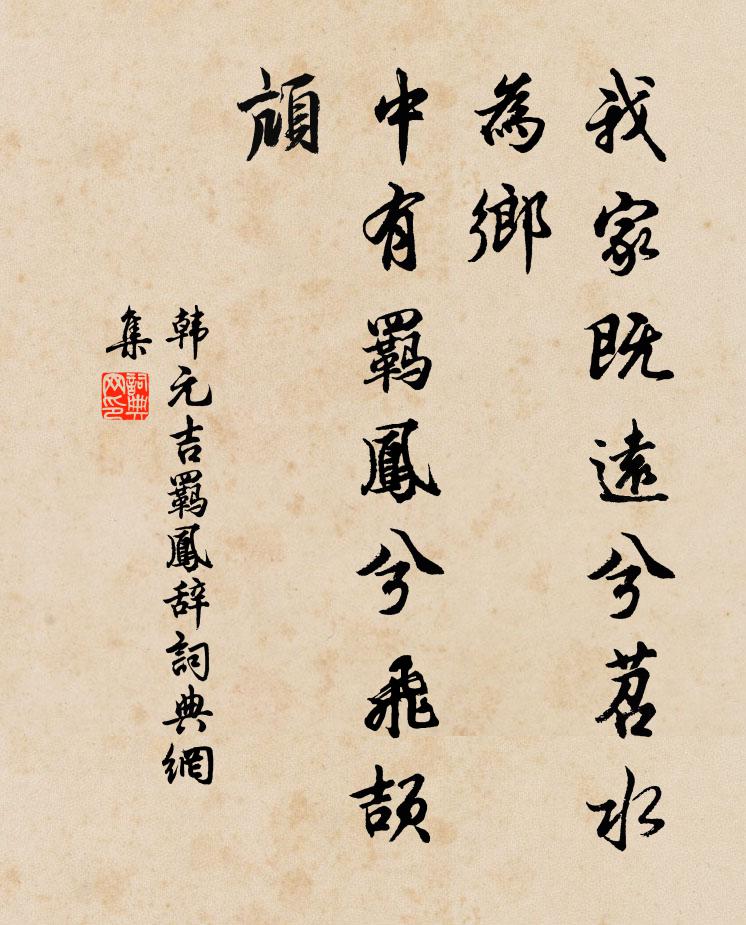 我家既遠兮苕水
為鄉
中有羈鳳兮飛頡
頏
韩元吉羈鳳辞詞典網
集
詞典网印